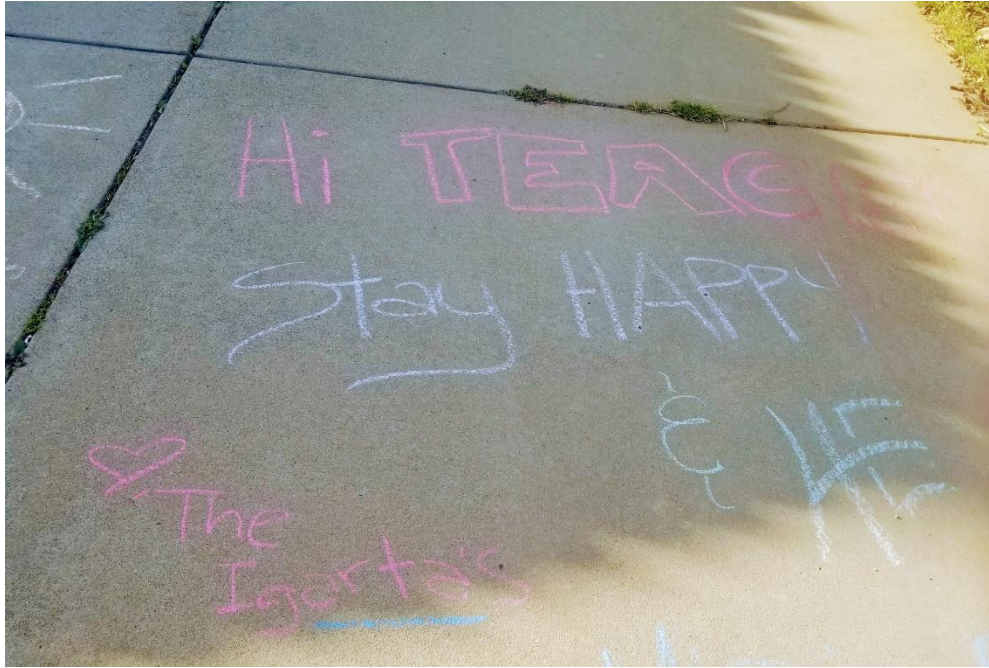 Hi TEACHE
Stay HAPPY!
& HE
The
Igarta's